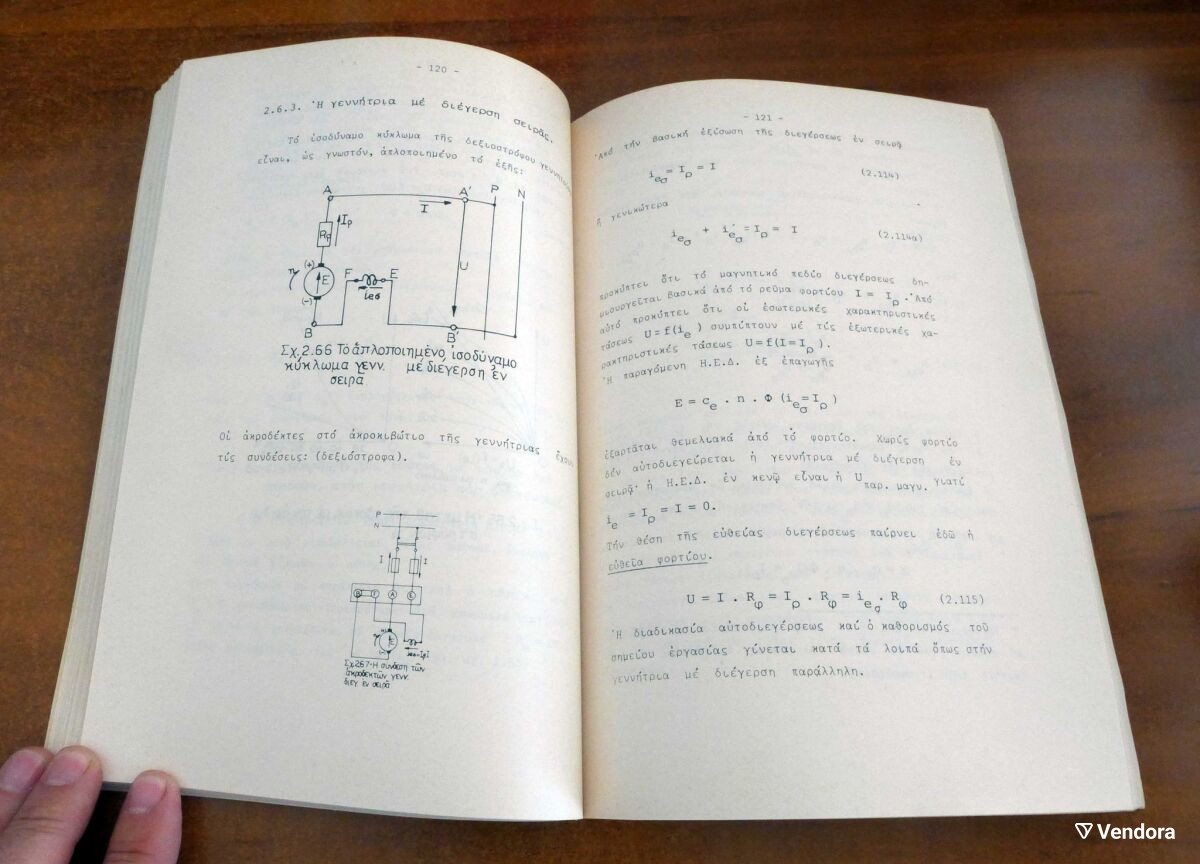 - 120 -
2.6.3. Ἡ γεννήτρια μέ διέγερση σειρᾶς.
Τό ἰσοδύναμο κύκλωμα τῆς δεξιοστρόφου γεννήτριας
εἶναι, ὡς γνωστόν, ἁπλοποιημένο τό ἑξῆς:
A A' P N
I
Iρ
Rσ
(+)
E
(-)
F E
ieσ
U
B B'
Σχ.2.66 Τό ἁπλοποιημένο ἰσοδύναμο
κύκλωμα γενν. μέ διέγερση ἐν
σειρᾶ
Οἱ ἀκροδέκτες στό ἀκροκιβώτιο τῆς γεννήτριας ἔχουν
τίς συνδέσεις: (δεξιόστροφα).
P
N
I I
B F A E
E
Σχ.2.67.Η σύνδεση τῶν
ἀκροδεκτῶν γενν.
διεγ. ἐν σειρᾶ
- 121 -
Ἀπό τήν βασική ἐξίσωση τῆς διεγέρσεως ἐν σειρᾷ
ieσ = Iρ = I (2.114)
ἤ γενικώτερα
ieσ + i'eσ = Iρ = I (2.114α)
προκύπτει ὅτι τό μαγνητικό πεδίο διεγέρσεως δη-
μιουργεῖται βασικά ἀπό τό ρεῦμα φορτίου I = Iρ. Ἀπό
αὐτό προκύπτει ὅτι οἱ ἐσωτερικές χαρακτηριστικές
τάσεως U=f(ie) συμπίπτουν μέ τίς ἐξωτερικές χα-
ρακτηριστικές τάσεως U=f(I=Iρ).
Ἡ παραγόμενη Η.Ε.Δ. ἐξ ἐπαγωγῆς
E = ce . n . Φ (ieσ=Iρ)
ἐξαρτᾶται θεμελιακά ἀπό τό φορτίο. Χωρίς φορτίο
δέν αὐτοδιεγείρεται ἡ γεννήτρια μέ διέγερση ἐν
σειρᾷ· ἡ Η.Ε.Δ. ἐν κενῷ εἶναι ἡ U παρ. μαγν. γιατί
ie = Iρ = I = 0.
Τήν θέση τῆς εὐθείας διεγέρσεως παίρνει ἐδῶ ἡ
εὐθεῖα φορτίου.
U = I . Rφ = Iρ . Rφ = ieσ . Rφ (2.115)
Ἡ διαδικασία αὐτοδιεγέρσεως καί ὁ καθορισμός τοῦ
σημείου ἐργασίας γίνεται κατά τά λοιπά ὅπως στήν
γεννήτρια μέ διέγερση παράλληλη.
Vendora